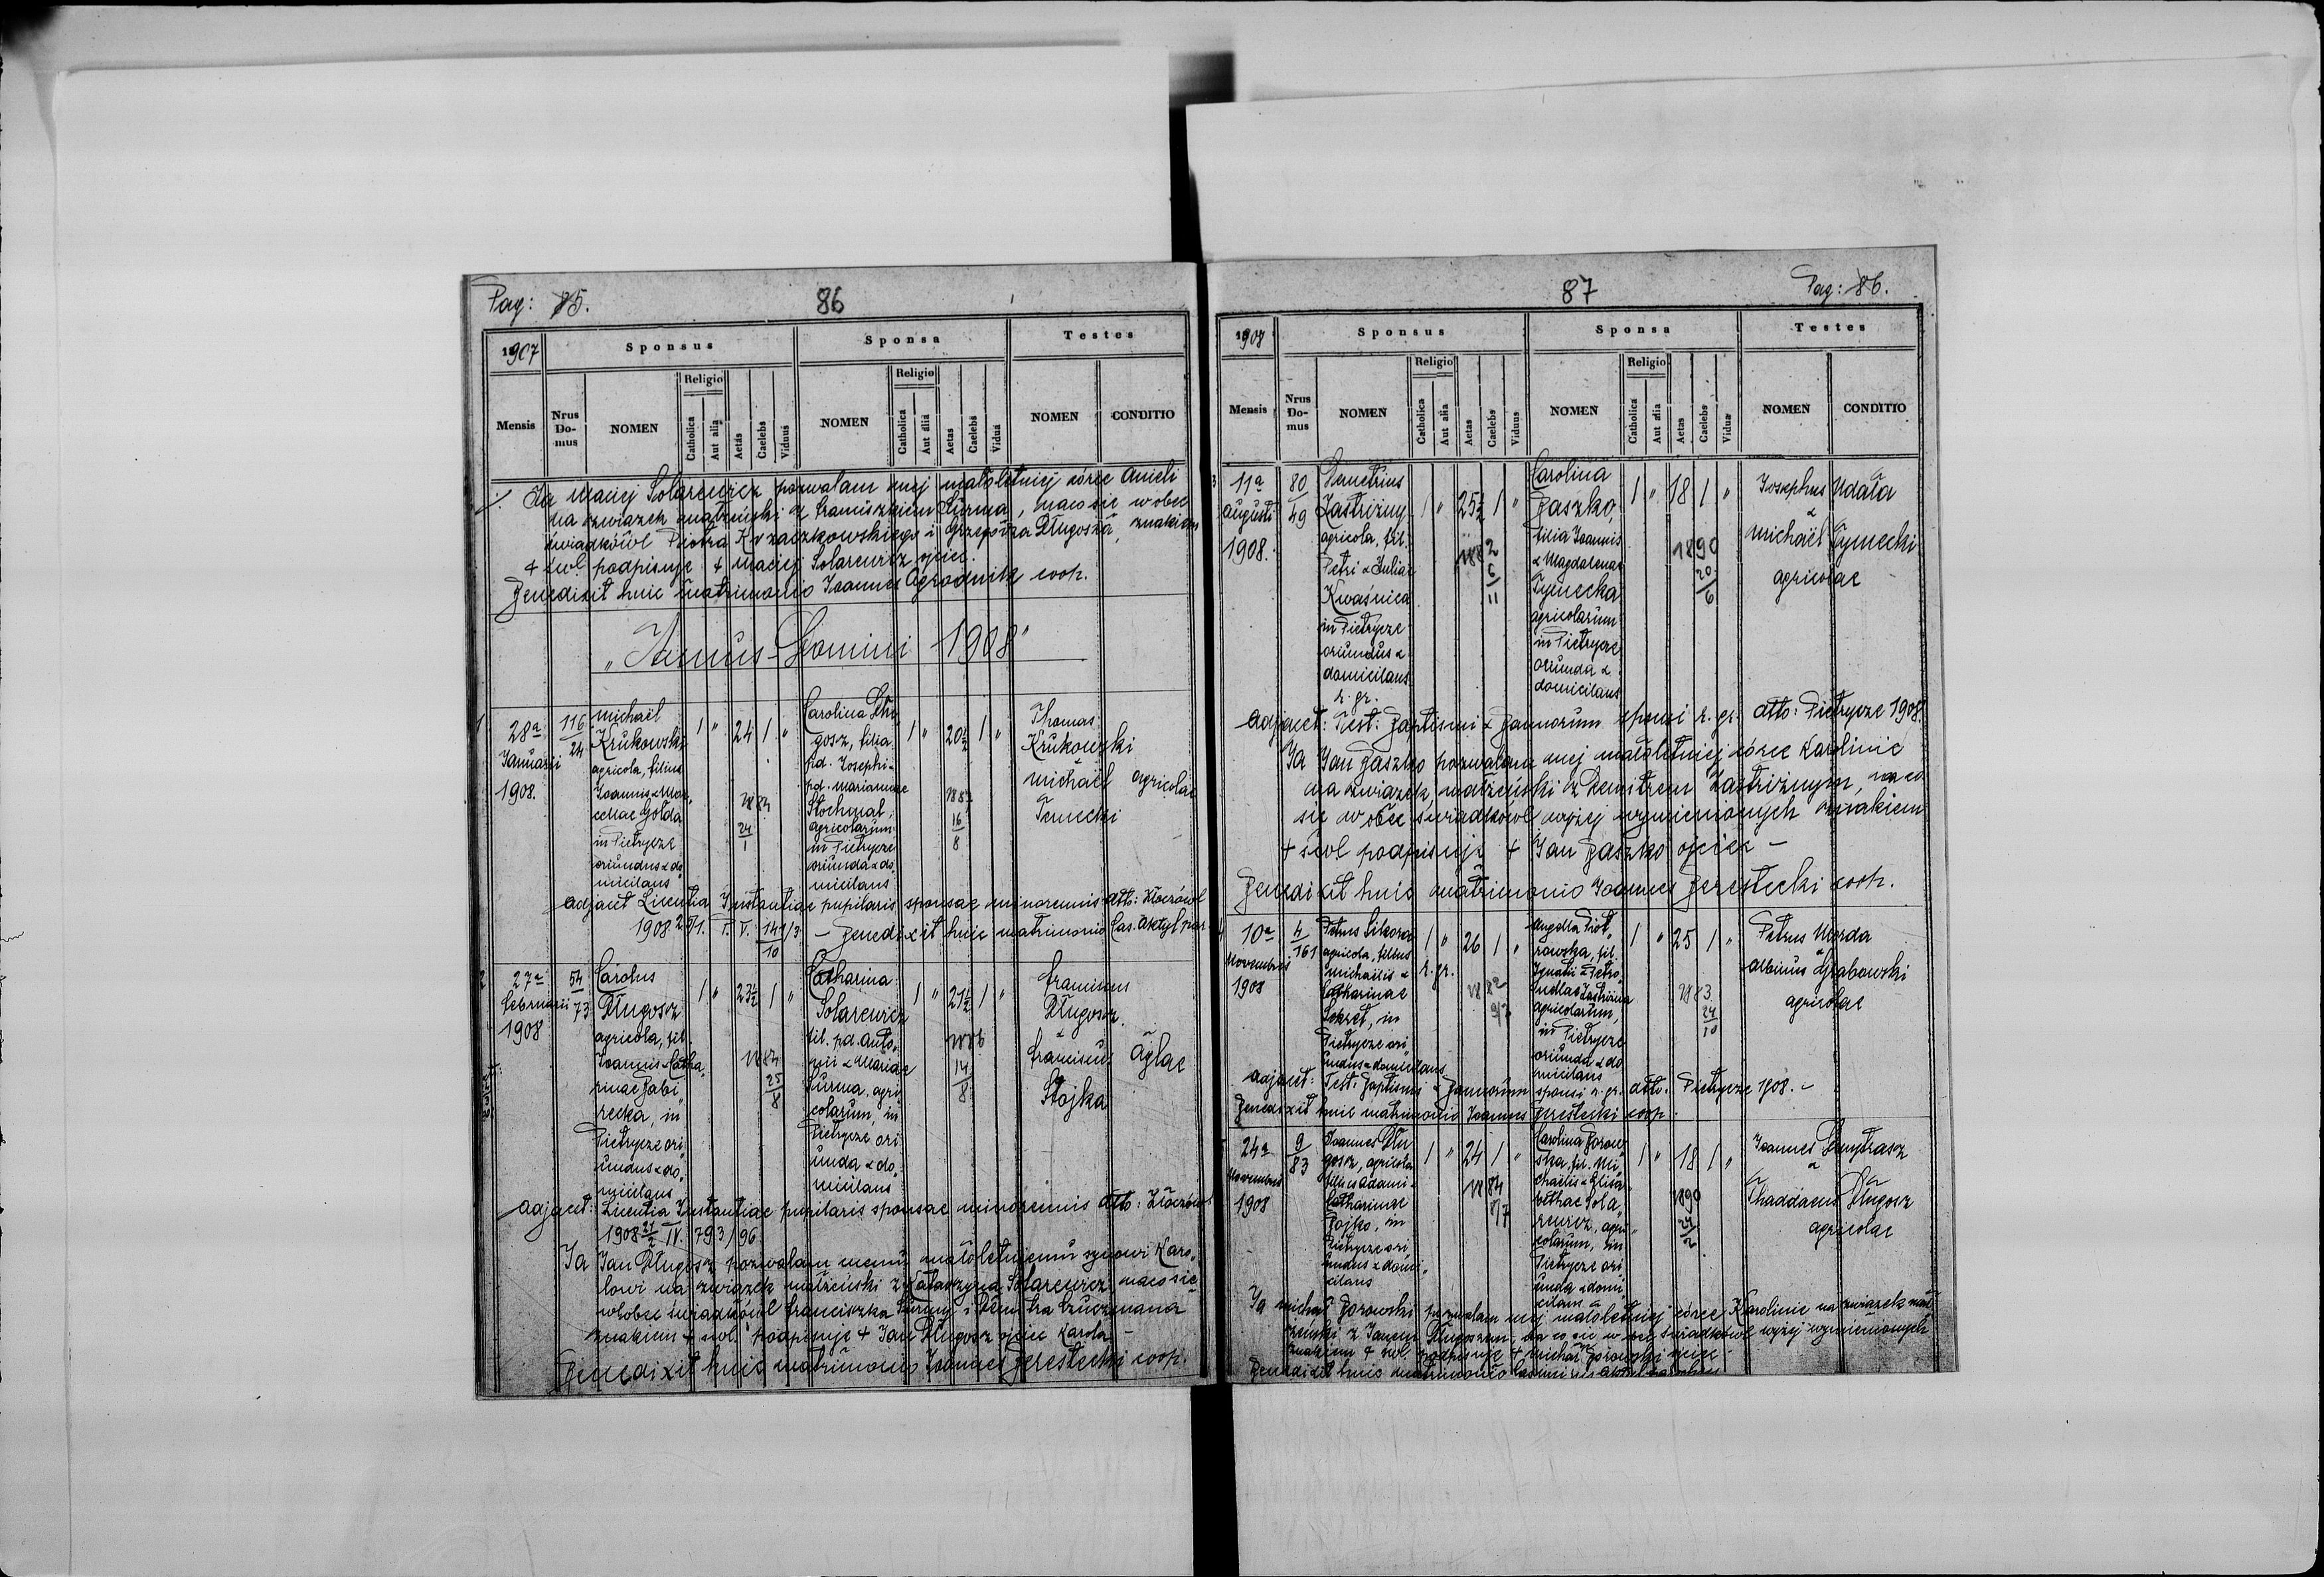 Pag: 85.
86
1907
Sponsus
Sponsa
Testes
Mensis
Nrus Do-mus
NOMEN
Religio
Catholica
Aut alia
Aetas
Caelebs
Viduus
NOMEN
Religio
Catholica
Aut alia
Aetas
Caelebs
Vidua
NOMEN
CONDITIO
Ja Maciej Solarewicz pozwalam mej małoletniej córce Anieli
na związek małżeński z Franciszkiem Surma, na co się w obec
świadków Piotra Krzaczkowskiego i Grzegórza Długosza, znakiem
+ św. podpisuje + Maciej Solarewicz ojciec.
Benedixit huic matrimonio Joannes Ogrodnik coop.
"Annus Domini 1908"
1
28a
Januarii
1908.
116
24
Michaël
Krukowski
agricola, filius
Joannis & Mar
cellae Gołda
in Pietrycze
oriundus & do
micilans
1 " 24 1 "
1884
24
1
Carolina Dłu
gosz, filia
pd. Josephi &
pd. Mariannae
Stochmal,
agricolarum
in Pietrycze
oriunda & do
micilans
1 " 20½ 1 "
1887
16
8
Thomas
Krukowski
&
Michaël
Tenecki
agricolae
adjacet Licentia Instantiae pupilaris sponsae minorennis dtto: Złoczów
1908 2/1. P. V. 141/3
10
- Benedixit huic matrimonio Cas. Akstył par.
2
27a
Februarii
1908
54
73
Carolus
Długosz
agricola, fil.
Joannis & Catha
rinae Babi
recka, in
Pietrycze ori
undus & do
micilans
1 " 23½ 1 "
1884
25
8
Catharina
Solarewicz
fil. pd. Anto
nii & Mariae
Surma, agri
colarum, in
Pietrycze ori
unda & do
micilans
1 " 21½ 1 "
1886
14
8
Franciscus
Długosz
&
Franciscus
Stojka
aglae
adjacet: Licentia Instantiae pupilaris sponsae minorennis dtto: Złoczów
1908 21/2 IV. 793/96
Ja Jan Długosz pozwalam memu małoletniemu synowi Karo
lowi na związek małżeński z Katarzyną Solarewicz na co się
wobec świadków Franciszka Surmy i Dmytra Czuczmana
znakiem + św. podpisuje + Jan Długosz ojciec Karola -
Benedixit huic matrimonio Joannes Berestecki coop.
87
Pag: 86.
1908
Sponsus
Sponsa
Testes
Mensis
Nrus Do-mus
NOMEN
Religio
Catholica
Aut alia
Aetas
Caelebs
Viduus
NOMEN
Religio
Catholica
Aut alia
Aetas
Caelebs
Vidua
NOMEN
CONDITIO
3
11a
Augusti
1908.
80
49
Demetrius
Zastrižnyj
agricola, fil.
Petri & Juliae
Kwasnica
in Pietrycze
oriundus &
domicilans
r. gr.
1 " 25½ 1 "
1882
6
11
Carolina
Baszko,
filia Joannis
& Magdalenae
Tynecka
agricolarum
in Pietrycze
oriunda &
domicilans
1 " 18 1 "
1890
20
6
Josephus Udała
&
Michaël Tynecki
agricolae
adjacet: Test: Baptismi & Bannorum sponsi r. gr. dtto: Pietrycze 1908.
Ja Jan Baszko pozwalam mej małoletniej córce Karolinie
na związek małżeński z Demitrem Zastrižnym, na co
się w obec świadków wyżej wymienionych znakiem
+ św. podpisuje + Jan Baszko ojciec -
Benedixit huic matrimonio Joannes Berestecki coop.
4
10a
Novembris
1908
4
161
Petrus Sikora
agricola, filius
Michaëlis &
Catharinae
Sekret, in
Pietrycze ori
undus & domicilans
1 " 26 1 "
r. gr.
1882
9/7
Angella Piot
rowska, fil.
Ignatii & Petro
nellae Zastrižna
agricolarum,
in Pietrycze
oriunda & do
micilans
1 " 25 1 "
1883
24
10
Petrus Morda
&
Albinus Grabowski
agricolae
adjacet: Test: Baptismi & Bannorum sponsi r. gr. dtto: Pietrycze 1908. -
Benedixit huic matrimonio Joannes Berestecki coop.
24a
Novembris
1908
9
83
Joannes Dłu
gosz, agricola
filius Adami &
Catharinae
Bojko, in
Pietrycze ori
undus & domi
cilans
1 " 24 1 "
1884
8/7
Carolina Gorow
ska, fil. Mi
chaëlis & Elisa
bethae Sola
rewicz, agri
colarum, in
Pietrycze ori
unda & domi
cilans
1 " 18 1 "
1890
24
2
Joannes Dmytrasz
&
Thaddaeus Długosz
agricolae
Ja Michał Gorowski pozwalam mej małoletniej córce Karolinie na związek mał
żeński z Janem Długoszem, na co się w obec świadków wyżej wymienionych
znakiem + św. podpisuje + Michał Gorowski ojciec -
Benedixit huic matrimonio Casimirus Akstył parochus